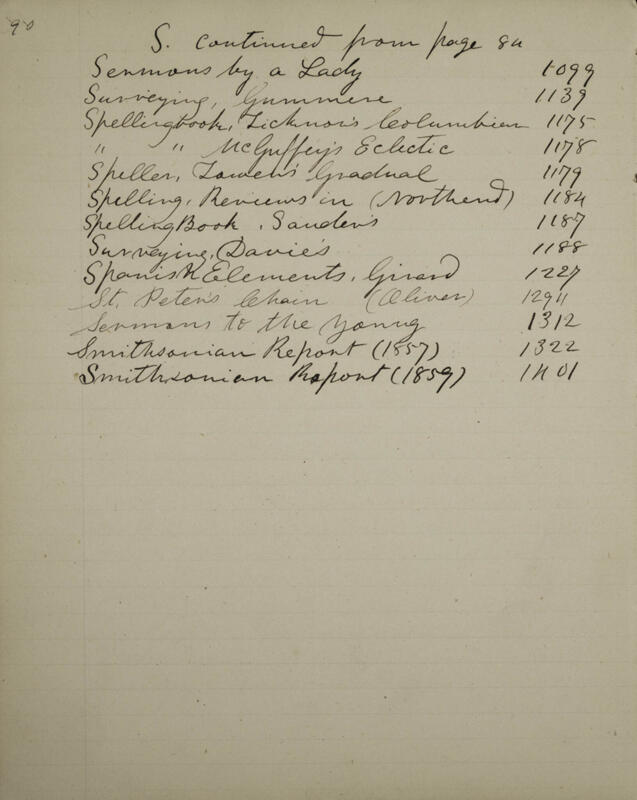 90
S. continued from page 84
Sermons by a Lady 1099
Surveying, Gummere 1139
Spellingbook, Ticknor's Columbian 1175
" " McGuffey's Eclectic 1178
Speller, Tower's Gradual 1179
Spelling, Reviews in (Northend) 1184
Spelling Book. Sander's 1187
Surveying, Davie's 1188
Spanish Elements, Girard 1227
St. Peter's Chain (Oliver) 1294
Sermons to the Young 1312
Smithsonian Report (1857) 1322
Smithsonian Report (1859) 1401